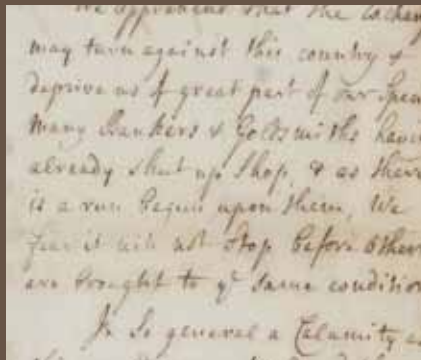 We apprehend that the Exchan
may turn against this country &
deprive us of great part of our Spec
Many Bankers & Goldsmiths have
already shut up Shop, & as there
is a run begun upon them, We
fear it will not stop before other
are brought to yͤ same condition
In So general a Calamity a